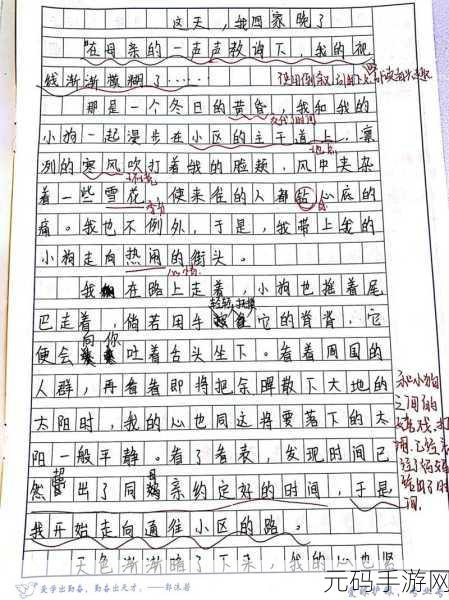 这天，我回家晚了
“在母亲的一声声教诲下，我的视
线渐渐模糊了……
那是一个冬日的黄昏，我和我的
交代时间
小狗一起漫步在小区的主干道上，凛
地点
冽的寒风吹打着我的脸颊，风中夹杂
环境
着一些雪花，使来往的人都钻心底的
痛。我也不例外，于是，我带上我的
小狗走向热闹的街头。
心情
我在路上走着，小狗也摇着尾
巴走着，倘若用手轻轻抚摸它的背脊，它
便会向你吐着舌头坐下。看着周围的
人群，再看看即将把余晖散下大地的
太阳时，我的心也同这将要落下的太
阳一般平静。看了看表，发现时间已
然超出了同母亲约定好的时间，于是
我开始走向通往小区的路。
天色渐渐暗了下来，我的心也紧
和小狗
之间的
美学出勤奋，勤奋出天才。——郭沫若
元码手游网